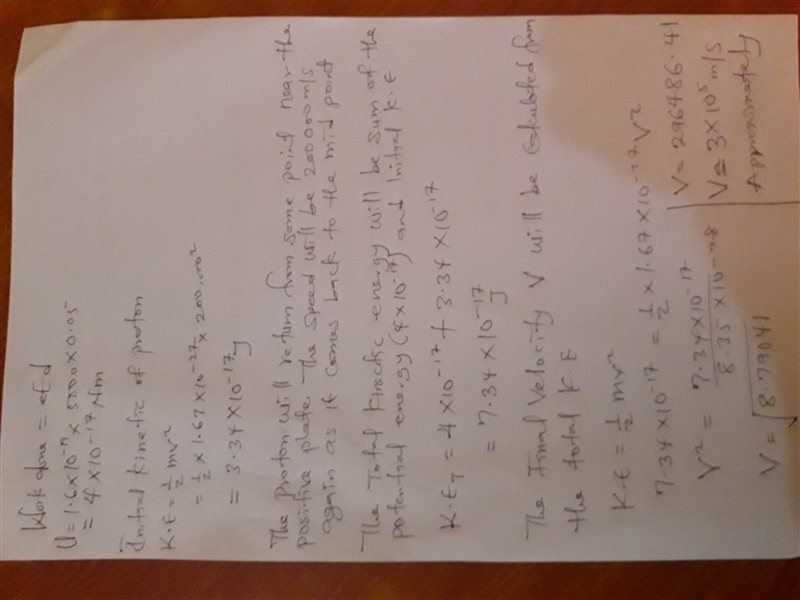 Work done = eEd
U = 1.6 × 10⁻¹⁹ × 5000 × 0.05
= 4 × 10⁻¹⁷ Nm
Initial kinetic of proton
K.E = ½ mv²
= ½ × 1.67 × 10⁻²⁷ × 200,000²
= 3.34 × 10⁻¹⁷ J
The proton will return from some point near the
positive plate. The speed will be 200000 m/s
again as it comes back to the mid point
The total kinetic energy will be sum of the
potential energy (4 × 10⁻¹⁷) and initial K.E
K.E_T = 4 × 10⁻¹⁷ + 3.34 × 10⁻¹⁷
= 7.34 × 10⁻¹⁷ J
The final velocity V will be calculated from
the total K.E
K.E = ½ mv²
7.34 × 10⁻¹⁷ = ½ × 1.67 × 10⁻²⁷ V²
V² = 7.34 × 10⁻¹⁷
8.35 × 10⁻²⁸
V = √8.79041
V = 296486.41
V = 3 × 10⁵ m/s
Approximately